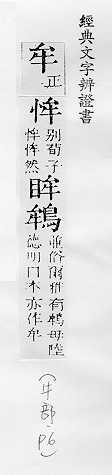 經典文字辨證書
牟正
恈別荀子
恈恈然
眸鴾並俗爾雅有鴾母陸
德明曰本亦作牟
(牛部.P6)